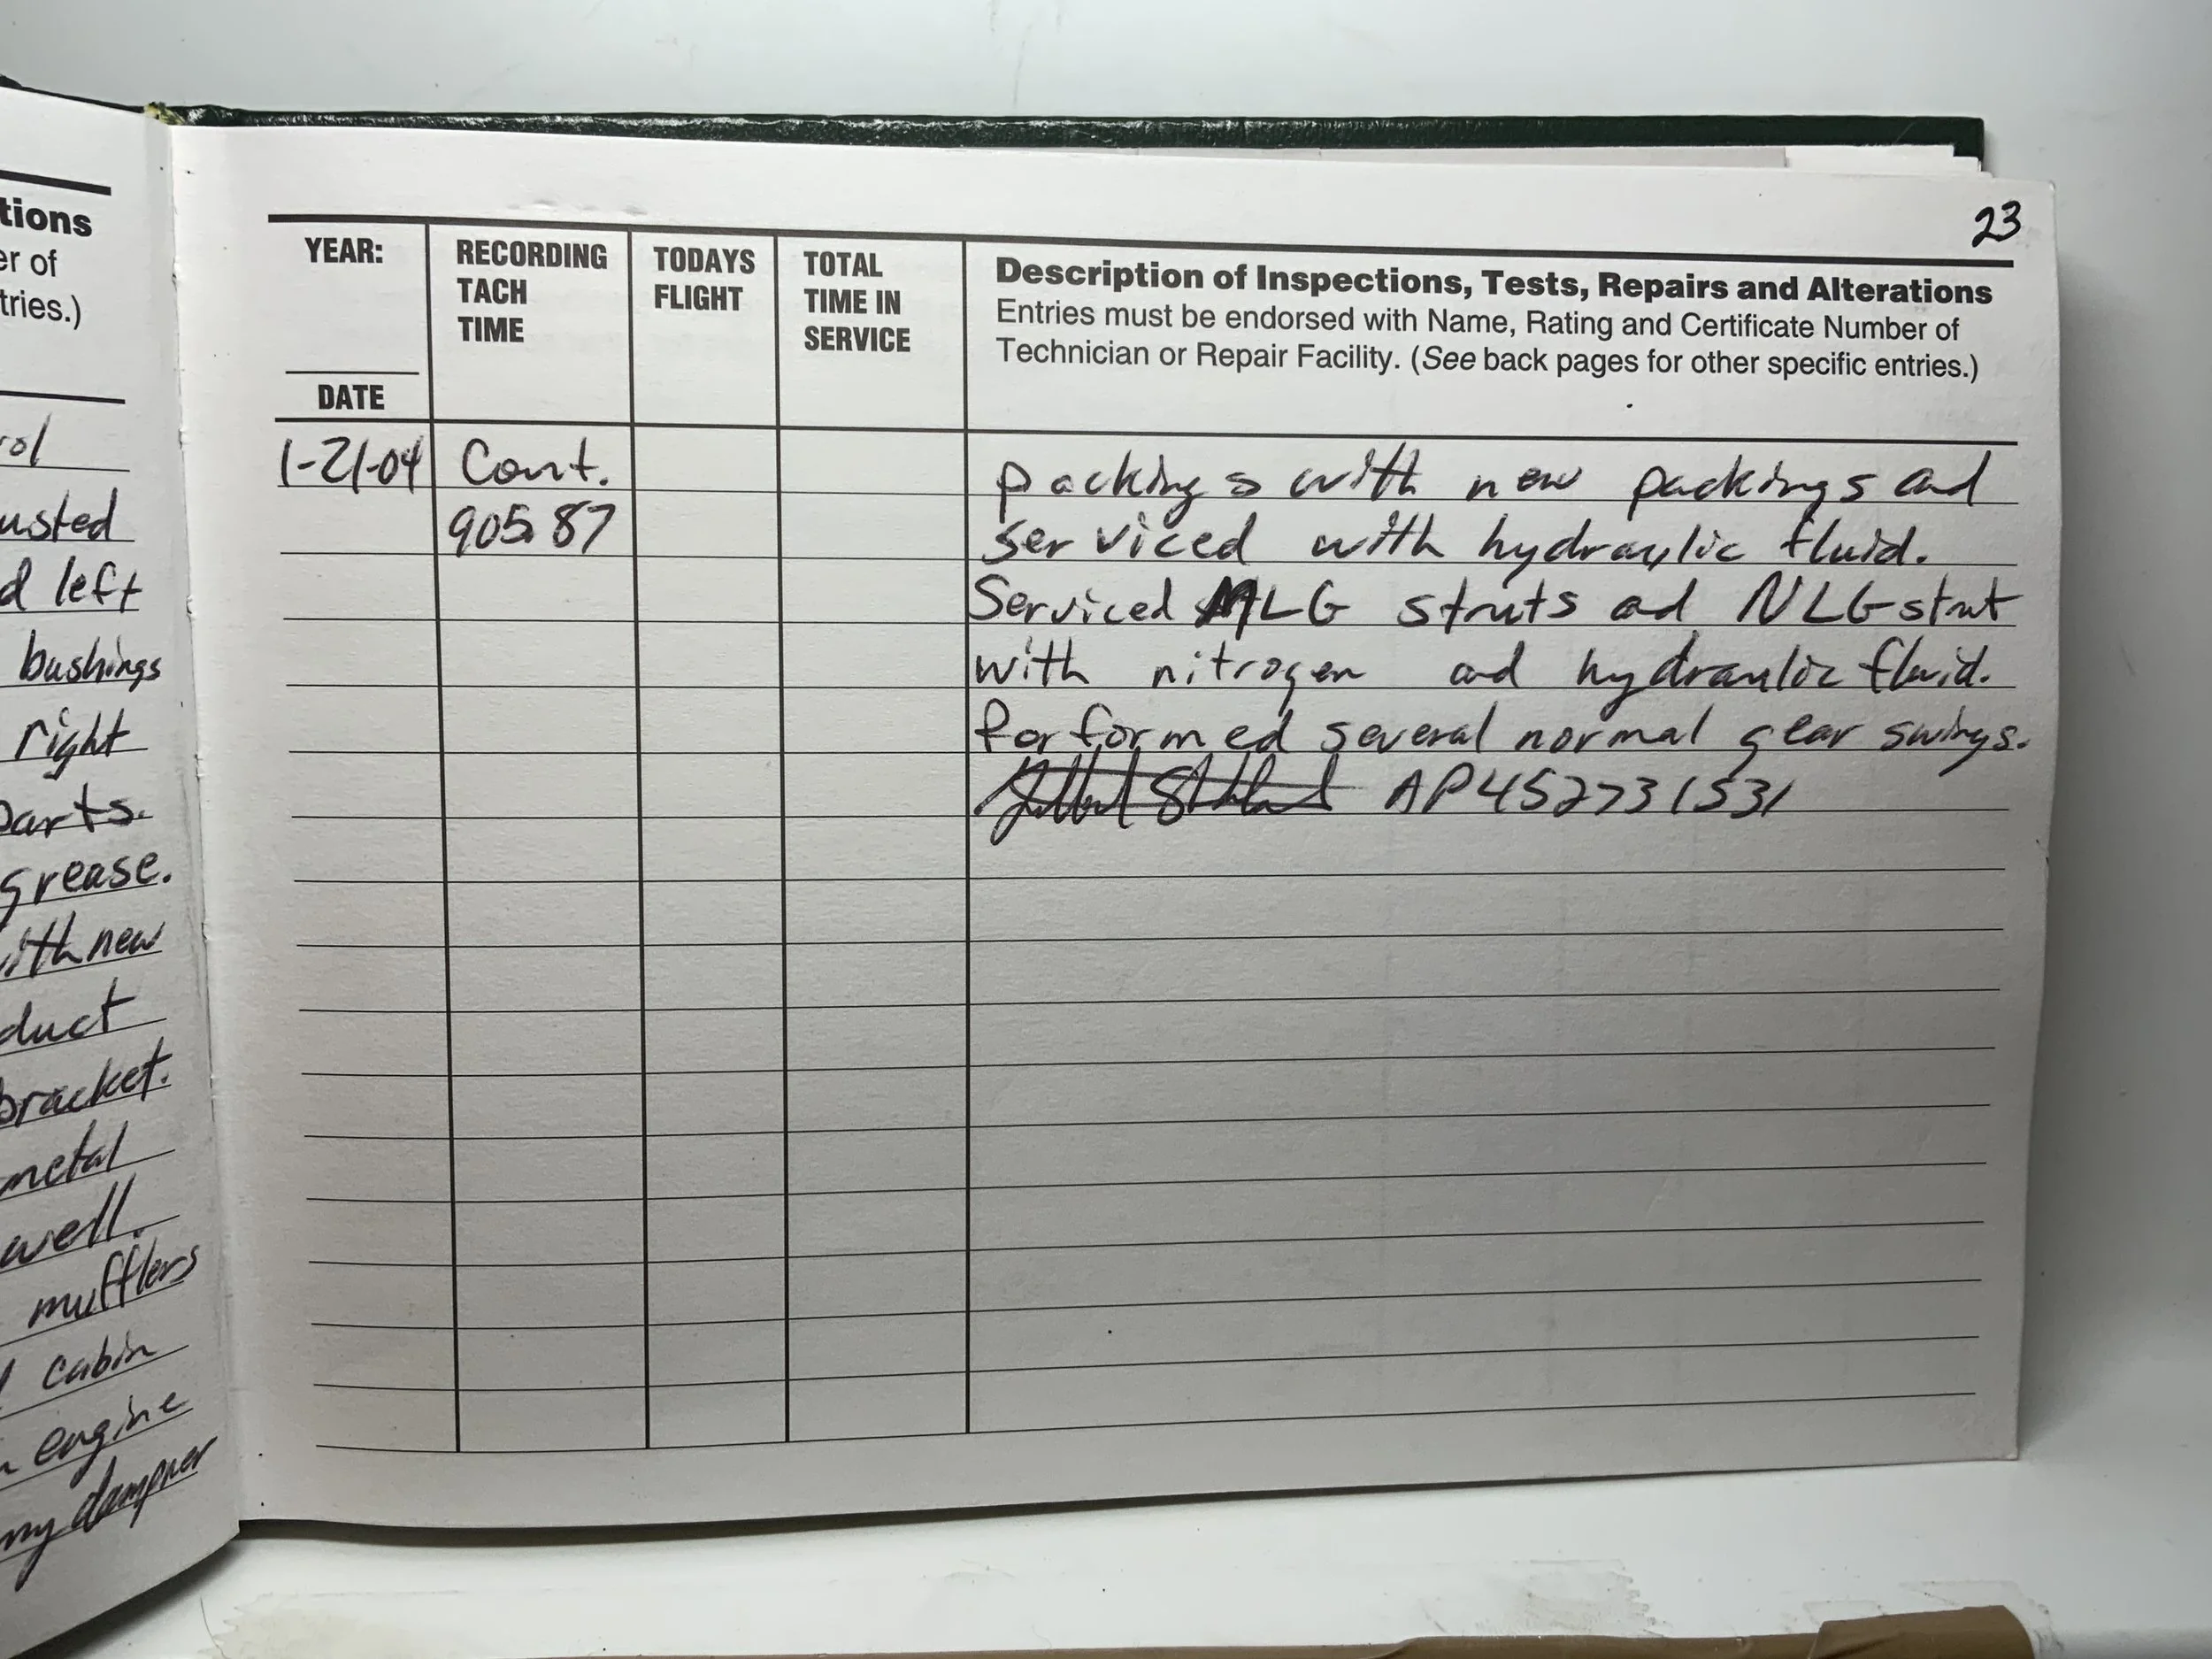 tions
er of
tries.)
rol
usted
d left
bushings
right
parts.
grease.
ith new
duct
bracket.
metal
well.
mufflers
cabin
engine
my dampner
23
YEAR:
DATE
RECORDING
TACH
TIME
TODAYS
FLIGHT
TOTAL
TIME IN
SERVICE
Description of Inspections, Tests, Repairs and Alterations
Entries must be endorsed with Name, Rating and Certificate Number of
Technician or Repair Facility. (See back pages for other specific entries.)
1-21-04 Cont. packings with new packings and
905.87 serviced with hydraulic fluid.
Serviced MLG struts ad NLG strut
with nitrogen and hydraulic fluid.
Performed several normal gear swings.
AP452731531